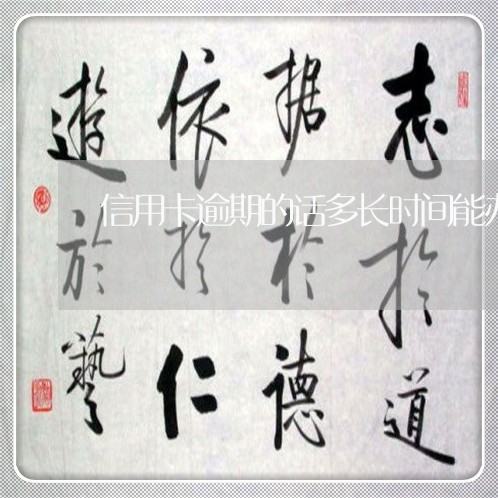 志於道
据於德
依於仁
遊於藝
信用卡逾期的话多长时间能